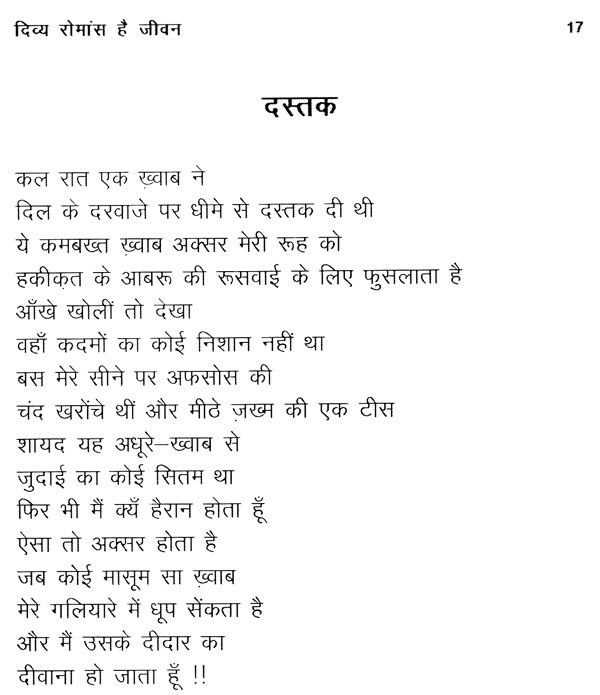 दिव्य रोमांस है जीवन 17
दस्तक
कल रात एक ख़्वाब ने
दिल के दरवाजे पर धीमे से दस्तक दी थी
ये कमबख्त ख़्वाब अक्सर मेरी रूह को
हकीक़त के आबरू की रूसवाई के लिए फुसलाता है
आँखे खोलीं तो देखा
वहाँ कदमों का कोई निशान नहीं था
बस मेरे सीने पर अफसोस की
चंद खरोंचे थीं और मीठे ज़ख्म की एक टीस
शायद यह अधूरे–ख्वाब से
जुदाई का कोई सितम था
फिर भी मैं क्यँ हैरान होता हूँ
ऐसा तो अक्सर होता है
जब कोई मासूम सा ख़्वाब
मेरे गलियारे में धूप सेंकता है
और मैं उसके दीदार का
दीवाना हो जाता हूँ !!